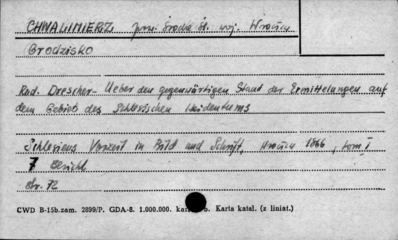 CHWALIMIERZ pow. Środa Śl. woj. Wrocław
Grodzisko
Rud. Drescher - Ueber den gegenwärtigen Stand der Ermittelungen auf
dem Gebiet des Schlesischen Heidenthums
Schlesiens Vorzeit in Bild und Schrift, Wrocław 1866, tom I
7 Bericht
Str. 72
CWD B-15b.zam. 2899/P. GDA-8. 1.000.000. Karta katal. (z liniat.)